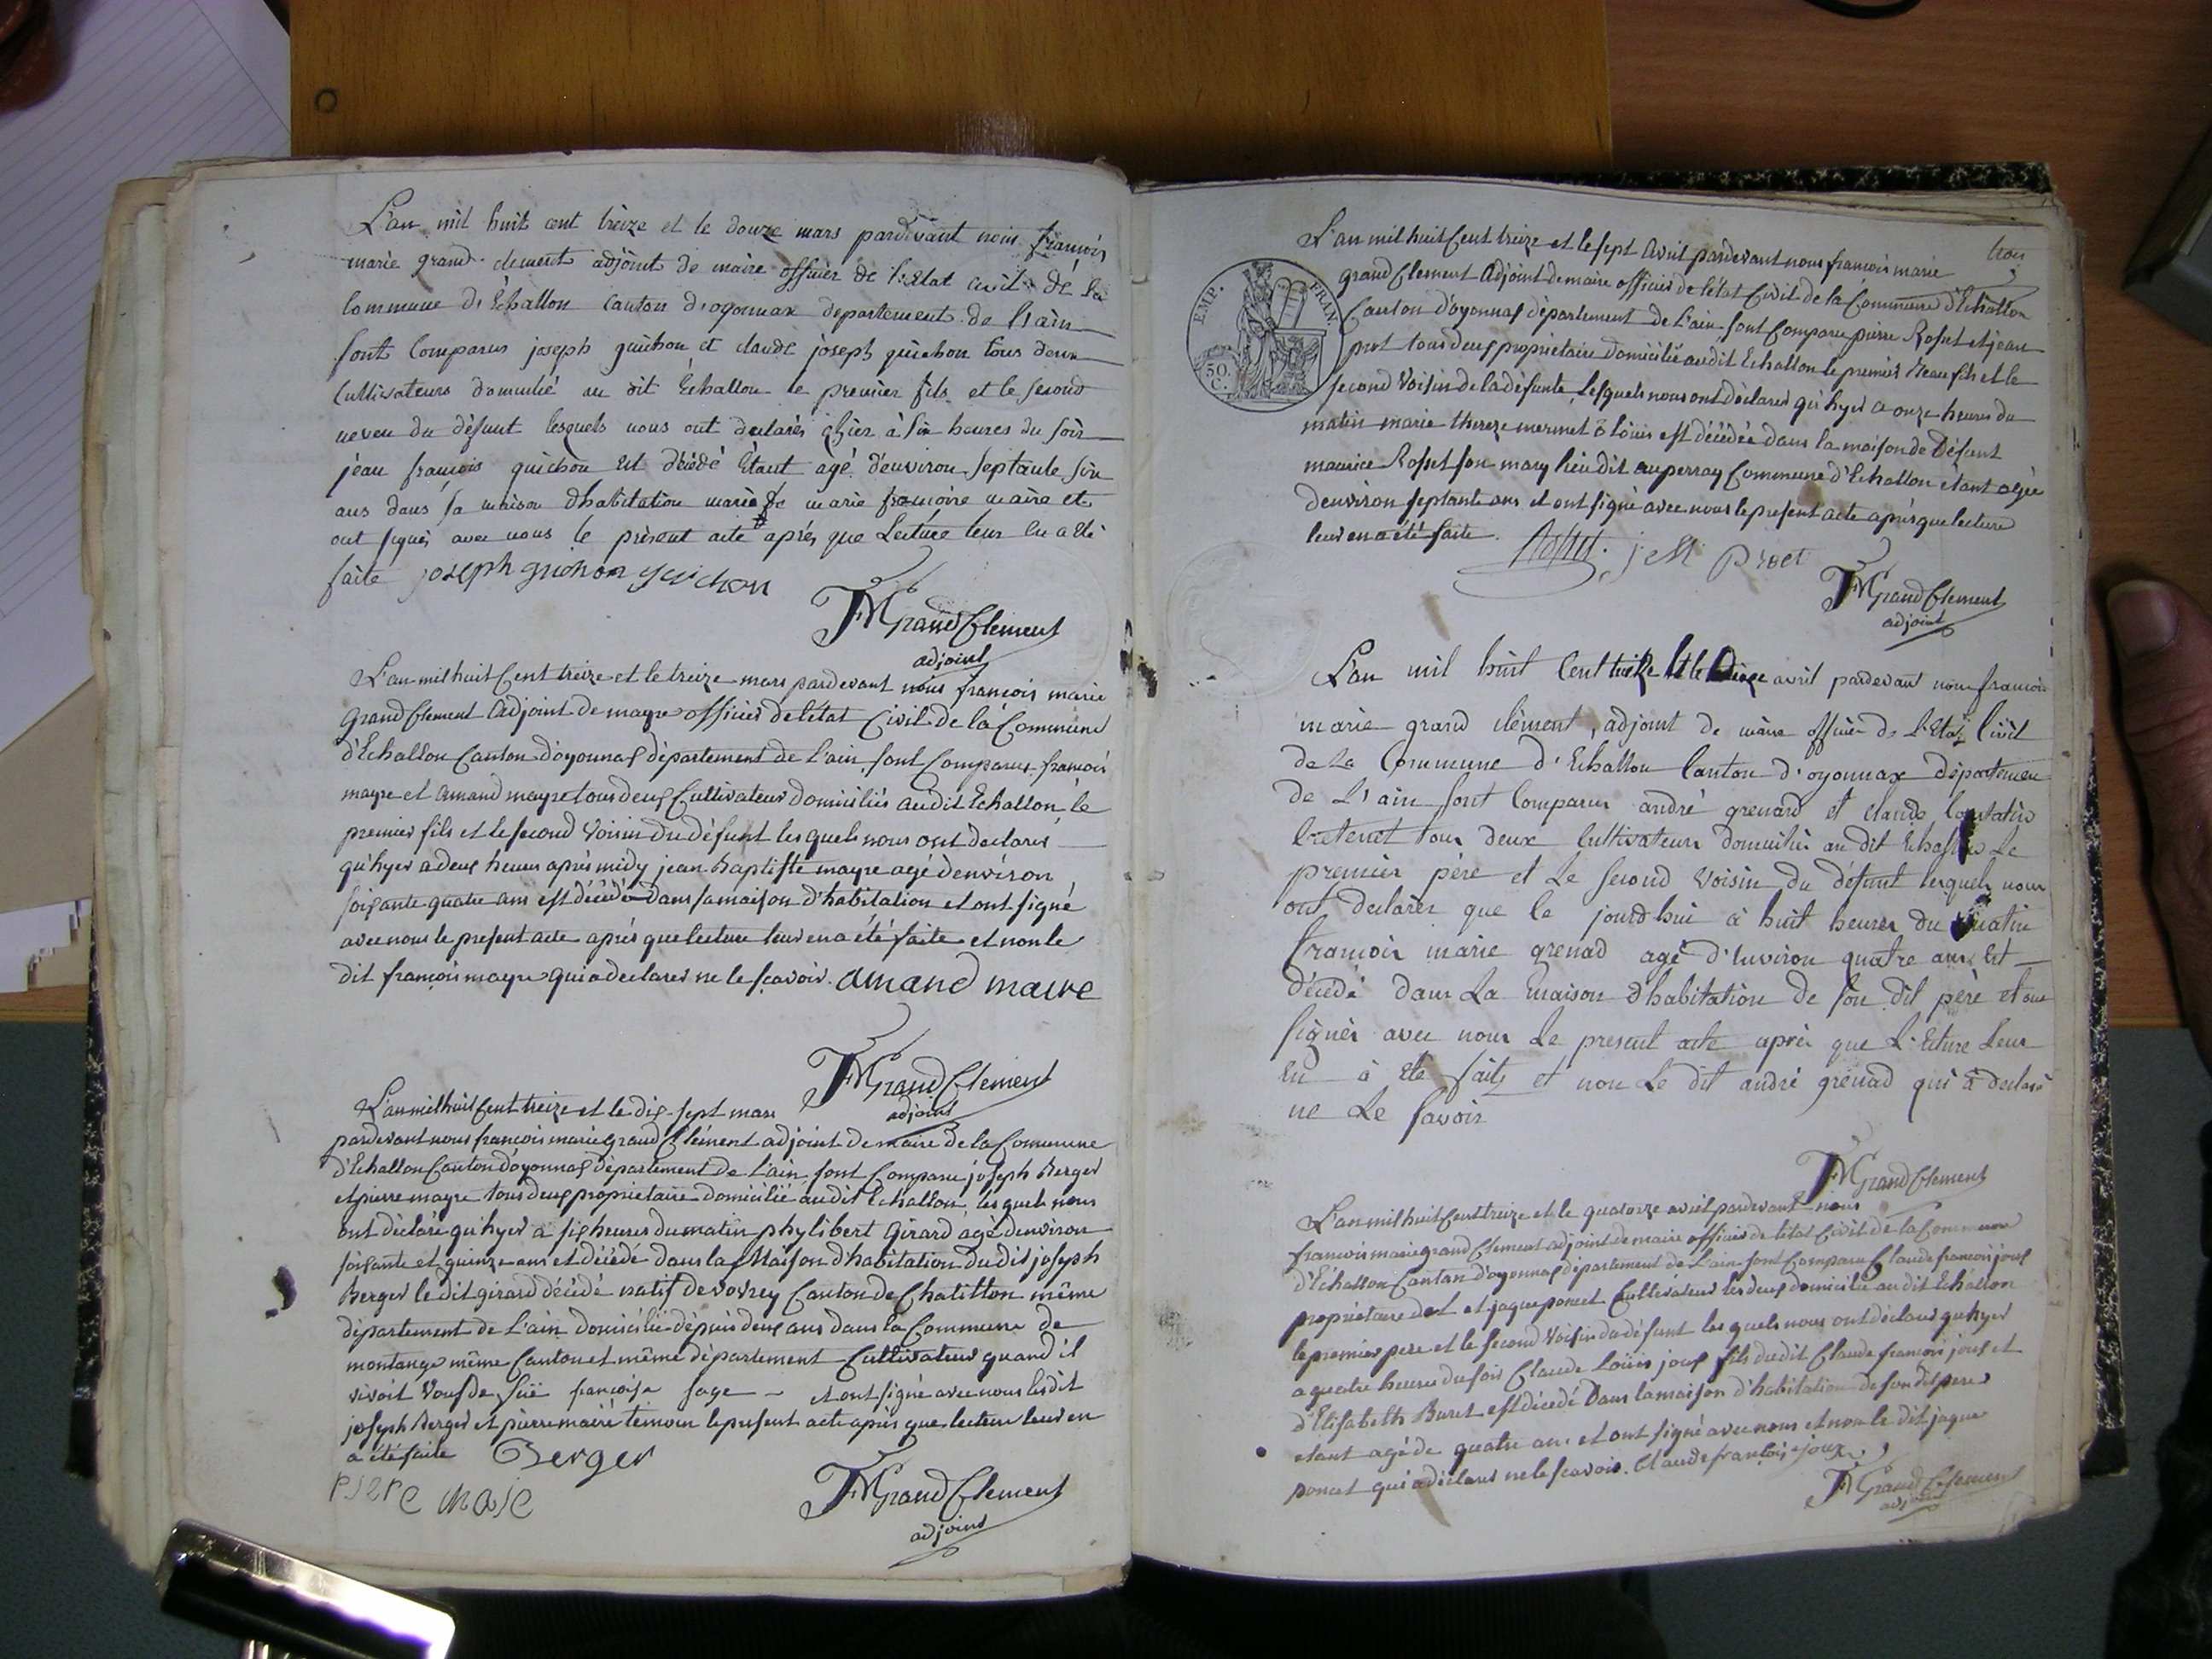 L'an mil huit cent treize et le douze mars pardevant nous françois
marie grand clement adjoint de maire officier de l'Etat civil de la
Commune d'Echallon canton d'oyonnax departement de l'ain
sont Comparus joseph guichon et claude joseph guichon tous deux
Cultivateurs domicilié au dit Echallon le premier fils et le second
neveu du défunt lesquels nous ont declarés qhier à six heures du soir
jean françois guichon est décédé étant agé d'environ septante six
ans dans sa maison d'habitation marié de marie françoise maire et
ont signés avec nous le présent acte après que Lecture leur en a été
faite joseph guichon guichon
FMGrandClement
adjoint
L'an mil huit Cent treize et le treize mars pardevant nous françois marie
GrandClement Adjoint de mayre officier de l'état Civil de la Commune
d'Echallon Canton d'oyonnas département de L'ain sont Comparus françois
mayre et amand mayre tous deux Cultivateurs domiciliés audit Echallon le
premier fils et le second Voisin du défunt lesquels nous ont déclarés
qu'hyer a deux heures après midy jean baptiste mayre agé denviron
soixante quatre ans est décédé dans sa maison d'habitation et ont signé
avec nous le present acte après que lecture leur en a été faite et non le
dit françois mayre qui a declarer ne le sçavoir. amand maire
FMGrandClement
adjoint
L'an mil huit Cent treize et le dix-sept mars
pardevant nous francois marie grand Clément adjoint de maire de la Commune
d'Echallon Canton d'oyonnas département de L'ain sont Comparu joseph Berger
et pierre mayre tous deux proprietaire domicilié audit Echallon, lesquels nous
ont déclaré qu'hyer à six heures du matin phylibert Girard agé denviron
soixante et quinze ans et décédé dans la Maison d'habitation dudit joseph
Berger le dit girard décédé natif de vovrey Canton de Chatillon même
département de L'ain domicilié depuis deux ans dans la Commune de
montange même Canton et même département Cultivateur quand il
vivoit Veuf de françoise sage et ont signé avec nous lesdit
joseph Berger et pierre mairé temoin le present acte après que lecture leur en
a été faite Berger
FMGrandClement
adjoint
trois
L'an mil huit Cent treize et le sept Avril pardevant nous francois marie
grand Clement Adjoint de maire officier de l'état Civil de la Commune d'Echallon
Canton d'oyonnas département de L'ain sont Comparu pierre Rosset et jean
prost tous deux proprietaire domicilié audit Echallon le premier Beau fils et le
second Voisin de la défunte, lesquels nous ont déclarer qu'hyer a onze heures du
matin marie thereze mermet est décédée dans la maison de Défunt
maurice Rosset son mary lieu dit au perray Commune d'Echallon étant agée
denviron septante ans et ont signé avec nous le present acte après que lecture
leur en a été faite. Rosset.
FMGrandClement
adjoint
EMP. FRAN.
50.
C.
L'an mil huit Cent treize et le avril pardevant nous francois
marie grand clément, adjoint de maire officier de L'Etat Civil
de La Commune d'Echallon Canton d'oyonnax département
de L'ain sont Comparus andré grenard et claude
tous deux Cultivateurs domiciliés au dit Echallon Le
premier père et Le second voisin du défunt lesquels nous
ont declarer que le jourd'hui à huit heures du matin
francois marie grenad agé d'environ quatre ans est
décédé dans La maison d'habitation de son dit père et ont
signés avec nous Le present acte après que L'ecture Leur
en à été faite et non Le dit andré grenad qui a declaré
ne Le savoir
FMGrandClement
L'an mil huit Cent treize et le quatorze avril pardevant nous
francois marie grand Clement adjoint de maire officier de l'état Civil de la Commune
d'Echallon Canton d'oyonnas département de L'ain sont Comparu Claude francois joux
propriétaire et jaque poncet Cultivateur les deux domicilié audit Echallon
le premier pere et le second Voisin du défunt lesquels nous ont déclarer qu'hyer
a quatre heures du soir Claude Louis joux fils dudit Claude francois joux et
d'Elisabeth Buret est décédé Dans la maison d'habitation de son dit pere
etant agé de quatre ans et ont signé avec nous et non le dit jaque
poncet qui a déclarer ne le sçavoir. Claude françois joux
FMGrandClement
adjoint